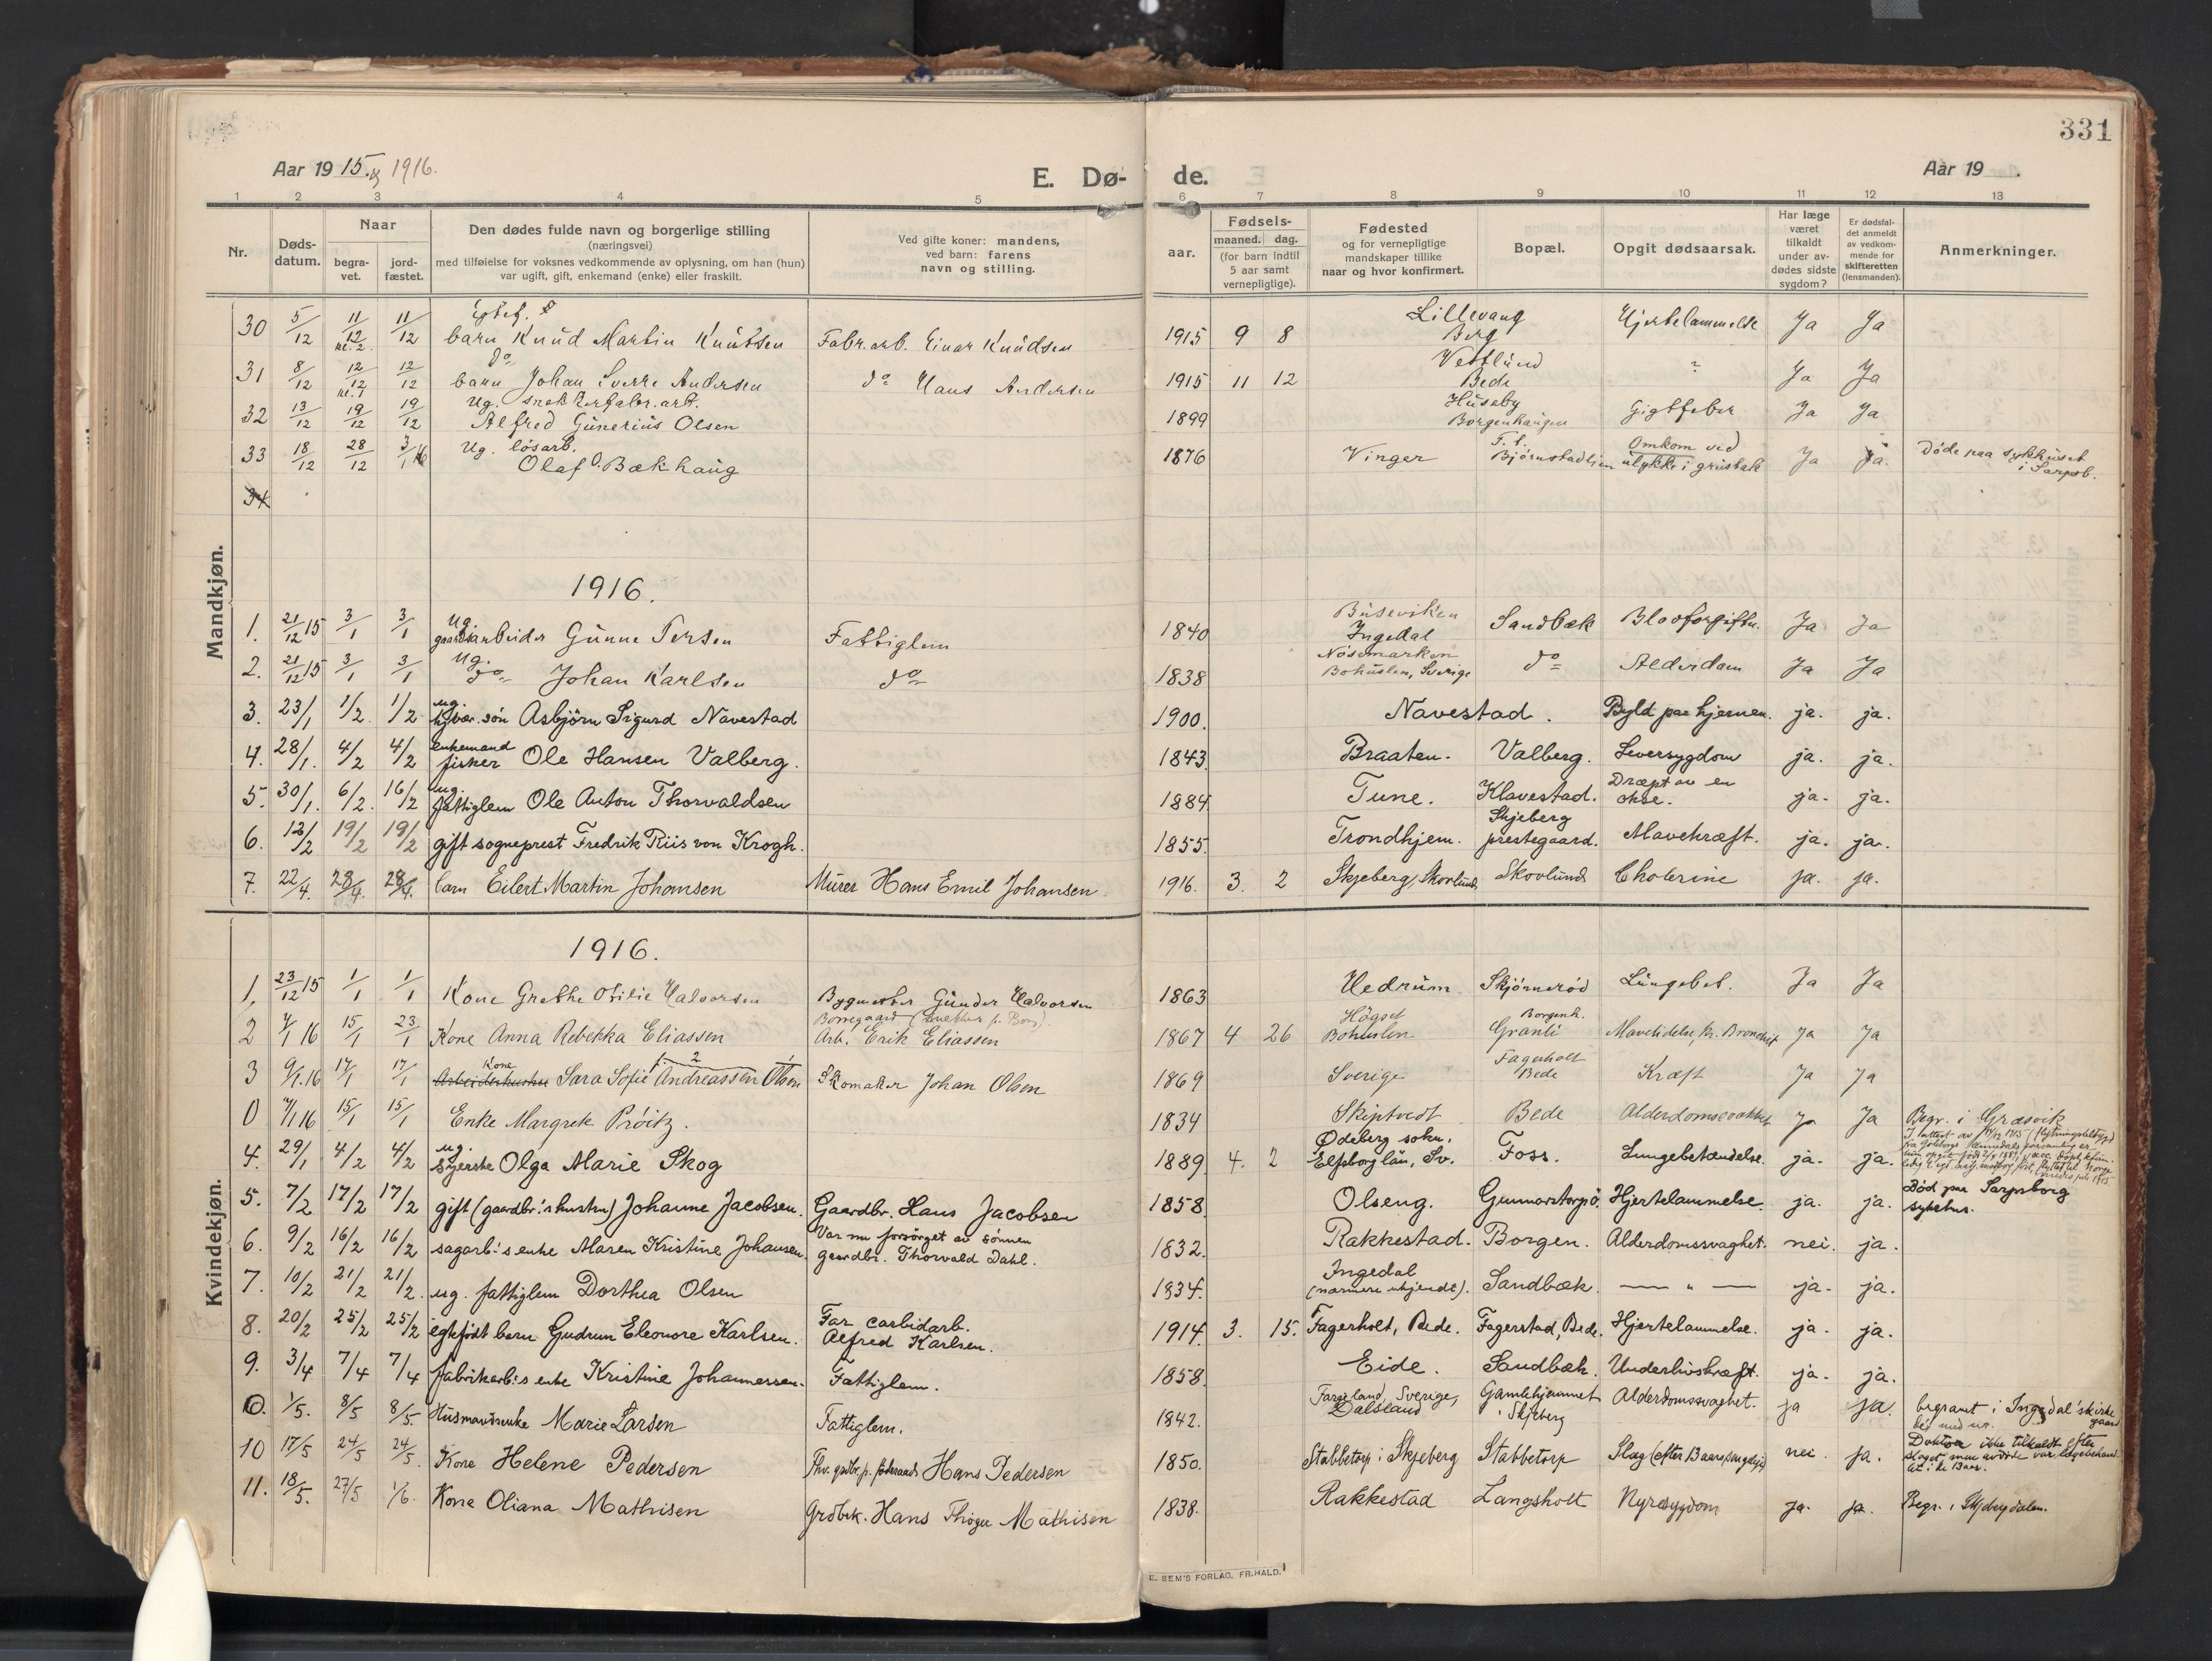 331
Aar 19 15. og 1916.
E. Dø- de.
Aar 19 .
1 2 3 4 5 6 7 8 9 10 11 12 13
Nr.
Døds-
datum.
Naar
begra-
vet.
jord-
fæstet.
Den dødes fulde navn og borgerlige stilling
(næringsvei)
med tilføielse for voksnes vedkommende av oplysning, om han (hun)
var ugift, gift, enkemand (enke) eller fraskilt.
Ved gifte koner: mandens,
ved barn: farens
navn og stilling.
aar.
Fødsels-
maaned. dag.
(for barn indtil
5 aar samt
vernepligtige).
Fødested
og for vernepligtige
mandskaper tillike
naar og hvor konfirmert.
Bopæl.
Opgit dødsaarsak.
Har læge
været
tilkaldt
under av-
dødes sidste
sygdom?
Er dødsfal-
det anmeldt
av vedkom-
mende for
skifteretten
(lensmanden).
Anmerkninger.
Mandkjøn.
30 5/12 11/12 kl. 2 11/12 barn Knud Martin Knutsen Fabr. arb. Einar Knudsen 1915 9 8 Lillevang Berg Hjertelammelse Ja Ja
31 8/12 12/12 kl. 1 12/12 do barn Johan Sverre Andersen do Hans Andersen 1915 11 12 Vestlund Bede ? Ja Ja
32 13/12 19/12 19/12 Ug. snekkerfabr. arb. Alfred Gunerius Olsen 1899 Huseby Borgenhaugen Gigtfeber Ja Ja
33 18/12 28/12 3/1 16 Ug. løsarb. Olaf O. Bækhaug 1876 Vinger F. t. Bjørnstadlien Omkom ved ulykke i grustak Ja Ja. Døde paa sykehuset i Sarpsb.
34
1916.
1. 21/12 15 3/1 3/1 Ug. gaardsarbeider Gunne Tersen Fattiglem 1840 Buseviken Ingedal Sandbæk Blodforgiftn. Ja Ja
2. 21/12 15 3/1 3/1 Ug. do Johan Karlsen do 1838 Nösemarken Bohuslen, Sverige do Alderdom Ja Ja
3. 23/1 1/2. 1/2 ug. Asbjörn Sigurd Navestad 1900. Navestad. Byld paa hjernen. ja. ja.
4. 28/1. 4/2 4/2 enkemand fisker Ole Hansen Valberg. 1843. Braaten. Valberg. Leversygdom ja. ja.
5. 30/1. 6/2. 16/2 ug. fattiglem Ole Anton Thorvaldsen 1884 Tune. Klavestad. Dræpt av en okse. ja. ja.
6. 12/2 19/2 19/2 gift sogneprest Fredrik Riis von Krogh. 1855. Trondhjem. Skjeberg prestegaard. Mavekræft. ja. ja.
7. 22/4. 28/4. 28/4. barn Eilert Martin Johansen Murer Hans Emil Johansen 1916. 3. 2 Skjeberg, Skovlund Skovlund Cholerine ja. ja.
Kvindekjøn.
1916.
1, 23/12 15 1/1 1/1 Kone Grethe Otilie Halvorsen Bygmester Gunder Halvorsen 1863 Hedrum Skjørnerød Lungebet. Ja Ja
2 4/1 16 15/1 23/1 Kone Anna Rebekka Eliassen Borregaard Arb. Erik Eliassen 1867 4 26 Högset Bohuslen Borgenh. Granli Mavelidelse, kr. Bronchit ja Ja
3 9/1.16 17/1 17/1 Kone Arbeiderhustru Sara Sofie Andreassen Olsen Skomaker Johan Olsen 1869 Sverige Fagerholt Bede Kræft Ja Ja
0 7/1 16 15/1 15/1 Enke Margrete Pröitz. 1834 Skiptvedt Bede Alderdomssvakhet Ja Ja Begr. i Græsvik
4. 29/1 4/2 4/2 ug. syerske Olga Marie Skog 1889 4. 2 Ødeberg sokn. Elfsborg län, Sv. Foss. Lungebetændelse. ja. ja.
5. 7/2 17/2 17/2 gift (gaardbr.'s hustru) Johanne Jacobsen. Gaardbr. Hans Jacobsen 1858 Olseng. Gunnarstorp ö. Hjertelammelse. ja. ja. Död paa Sarpsborg sykehus.
6. 9/2 16/2 16/2 sagarb.'s enke Maren Kristine Johansen. Var nu forsörget av sönnen gaardbr. Thorvald Dahl. 1832. Rakkestad. Borgen. Alderdomssvaghet. nei. ja.
7. 10/2 21/2 21/2. ug. fattiglem Dorthea Olsen 1834. Ingedal (nærmere ukjendt). Sandbæk. — " — ja. ja.
8. 20/2 25/2 25/2 egtefödt barn Gudrun Eleonore Karlsen. Far carbidarb. Alfred Karlsen. 1914 3. 15. Fagerholt, Bede. Fagerstad, Bede. Hjertelammelse. ja. ja.
9. 3/4 7/4 7/4 fabrikarb.'s enke Kristine Johannessen. Fattiglem. 1858. Eide. Sandbæk. Underlivskræft. ja. ja.
0. 1/5. 8/5 8/5. Husmandsenke Marie Larsen Fattiglem. 1842. Sverige, Dalsland Gamlehjemmet i Skjeberg Alderdomssvaghet. ja ja. begravet i Ingedal's kirkegaard
10 17/5 24/5 24/5. Kone Helene Pedersen Hans Pedersen 1850. Stabbetorp i Skjeberg Stabbetorp Slag nei. ja. Doktor ikke tilkaldt efter slaget, men avdöde var lægebehandlet i de 13 aar.
11. 18/5. 27/5 1/6. Kone Oliana Mathisen Grdbrk. Hans Thøger Mathisen 1838. Rakkestad Langsholt Nyresygdom ja. ja. Begr. i Skjebergdalen.
E. SEM'S FORLAG, FR.HALD.